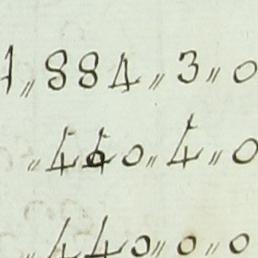 1„884„3„0
„440„4„0
„440„0„0